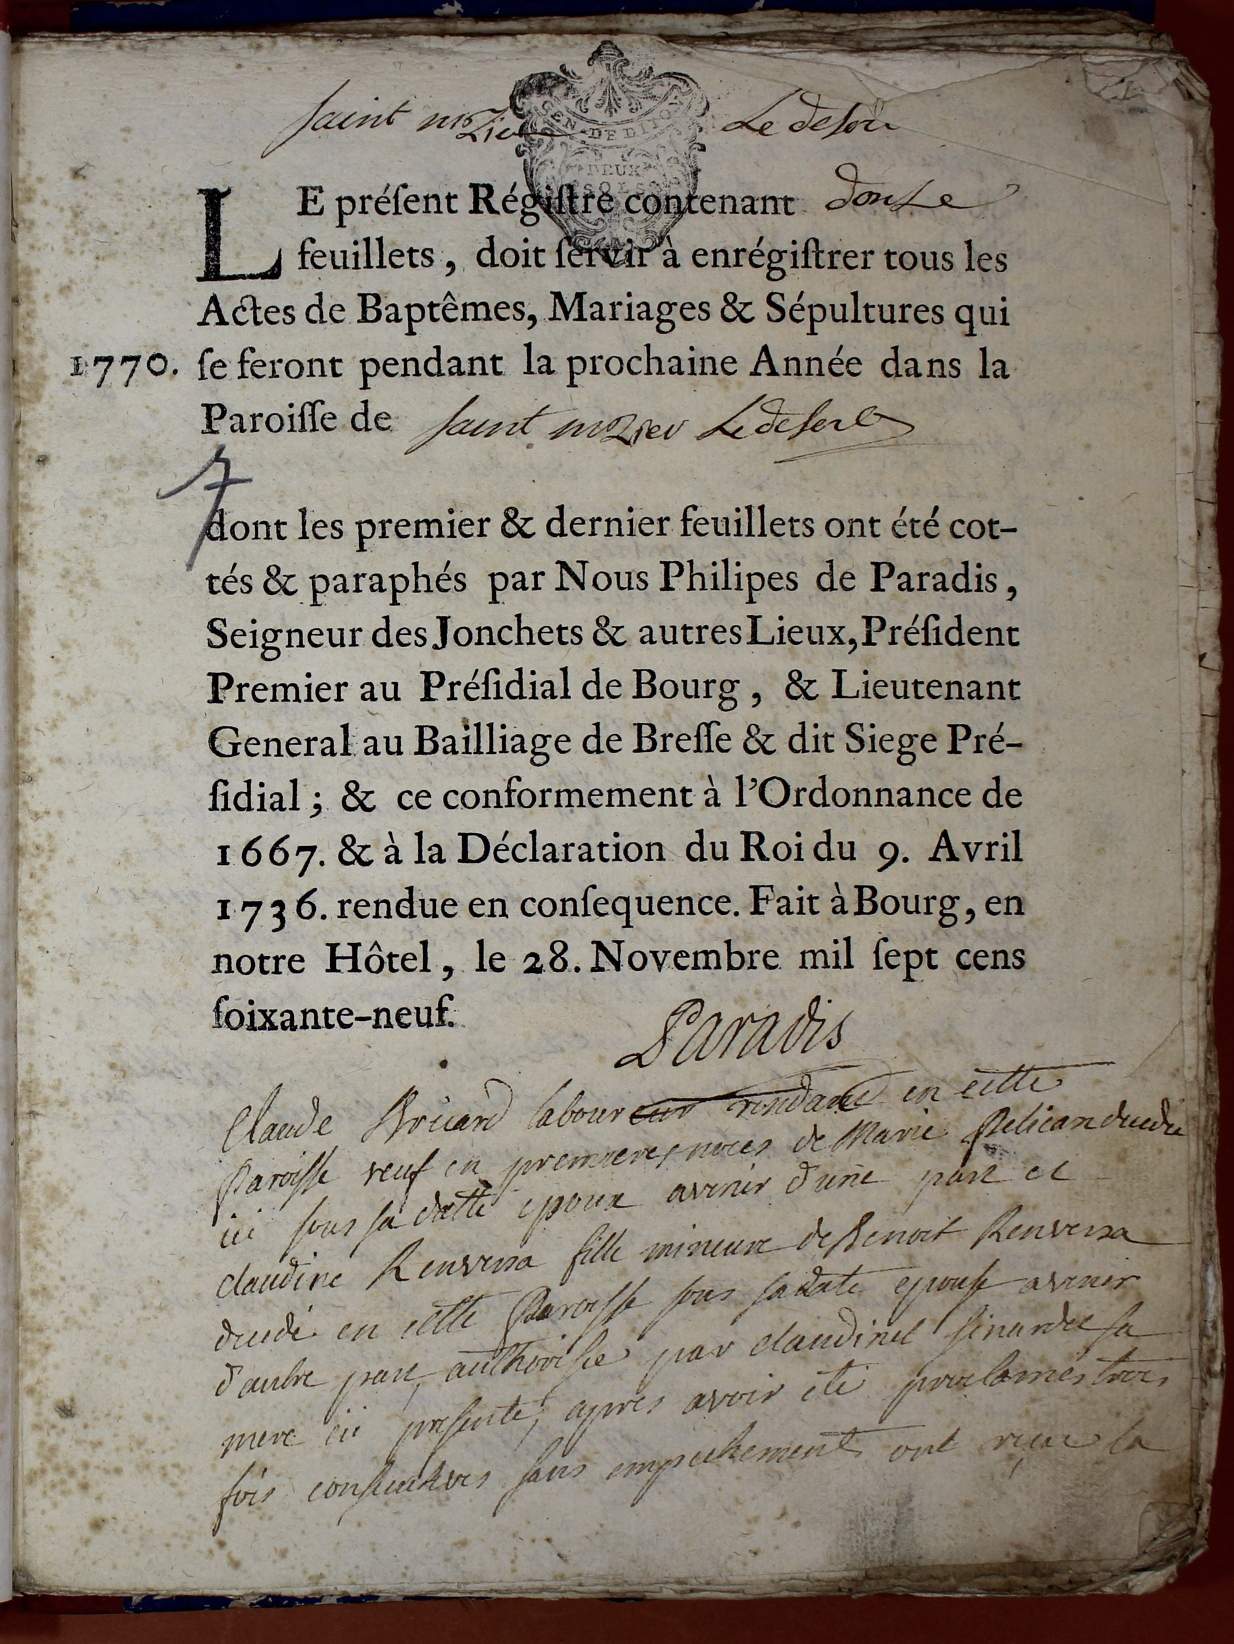 saint nizier Le desert
GEN. DE DIJON
DEUX
SOLS
LE préſent Régiſtre contenant douze
feuillets, doit ſervir à enrégiſtrer tous les
Actes de Baptêmes, Mariages & Sépultures qui
1770. ſe feront pendant la prochaine Année dans la
Paroiſſe de saint nizier Le desert
7
dont les premier & dernier feuillets ont été cot-
tés & paraphés par Nous Philipes de Paradis,
Seigneur des Jonchets & autres Lieux, Préſident
Premier au Préſidial de Bourg, & Lieutenant
General au Bailliage de Breſſe & dit Siege Pré-
ſidial; & ce conformement à l'Ordonnance de
1667. & à la Déclaration du Roi du 9. Avril
1736. rendue en conſequence. Fait à Bourg, en
notre Hôtel, le 28. Novembre mil ſept cens
ſoixante-neuf.
Paradis
Claude Brivard laboureur residant en cette
Paroisse veuf en premieres noces de Marie Pelican
ici sous sa datte epoux avenir d'une part et
claudine Renversa fille mineure de Benoit Renversa
en cette Paroisse sous sa date epouse avenir
d'autre part, authorisée par claudine sa
mere ici presente, apres avoir été proclamés trois
fois consecutives sans empechement ont reçu la